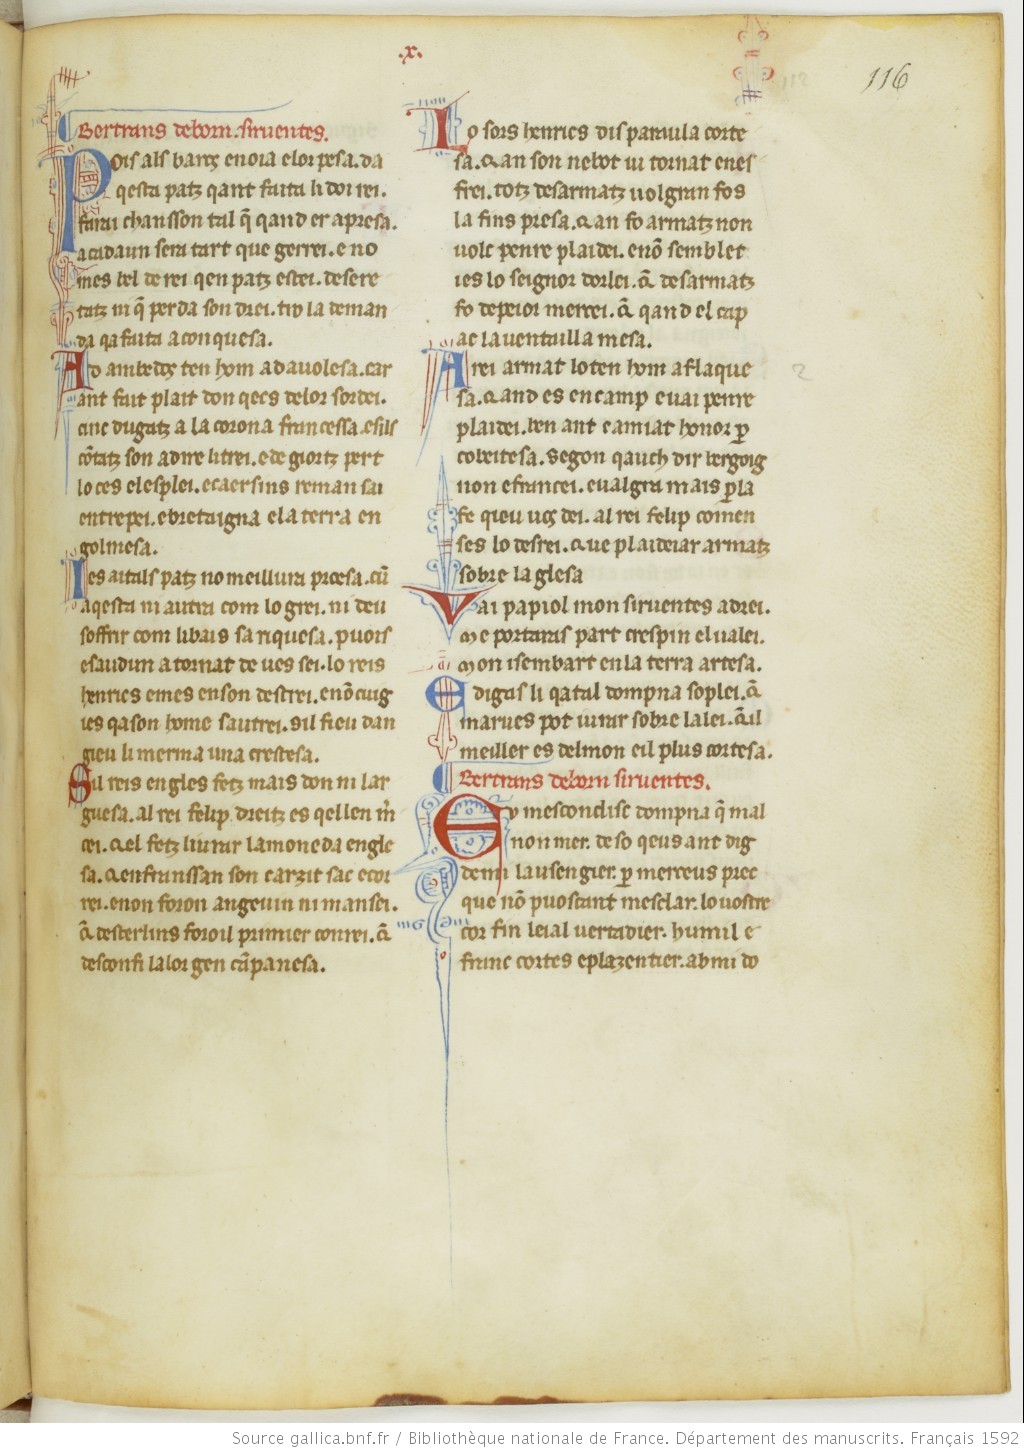 .x.
116
Bertrans deborn. siruentes.
Pois als barõs enoia elor pesa. da
qesta patz qant faita li doi rei.
farai chansson tal q̃ qand er apresa.
acadaun sera tart que gerrei. e no
mes bel de rei qen patz estei. desere
tatz ni q̃ perda son drei. tro la deman
da qa faita aconquesa.
Ad ambedos ten hom ad auolesa. car
ant fait plait don qecs delor sordei.
cinc dugatz a la corona francessa. e sils
cõtatz son adire li trei. e de giortz pert
lo ces el esplei. e caersins reman sai
entrepei. e bretaigna e la terra en
golmesa.
Ies aitals patz no meillura proesa. cũ
aqesta ni autra com lo grei. ni deu
soffrir com li bais sa riquesa. puois
esaudun a tornat deues sei. lo reis
henrics e mes en son destrei. e nõ cuig
ies qa son home sautrei. sil fieu dan
gieu li merma una crestesa.
Sil reis engles fetz mais don ni lar
guesa. al rei felip dreitz es qel len m̃
cei. qel fetz liurar la moneda engle
sa. qenfranssan son carzit sac ecor
rei. e non foron angeuin ni mansei.
q̃ desterlins foro il primier conrei. q̃
desconfi la lor gen cãpanesa.
Lo sors henrics dis paraula corte
sa. qan son nebot ui tornat enes
frei. totz desarmatz uolgran fos
la fins presa. qan fo armatz non
uolc penre plaidei. e nõ semblet
ies lo seignor dorlei. q̃ desarmatz
fo depeior mercei. q̃ qand el cap
ac la uentailla mesa.
A rei armat lo ten hom a flaque
sa. qand es en camp e uai penre
plaidei. ben ant camiat honor ꝑ
cobeitesa. segon qauch dir bergoig
non e francei. e ualgra mais ꝑ la
fe qieu uos dei. al rei felip comen
ses lo desrei. que plaideiar armatz
sobre la glesa
Vai papiol mon siruentes adrei.
me portaras part crespin el ualei.
mon isembart en la terra artesa.
E digas li qa tal dompna soplei. q̃
marues pot iurar sobre la lei. qil
meiller es del mon e il plus cortesa.
Bertrans deborn siruentes.
Eu mescondisc dompna q̃ mal
non mer. de so qeus ant dig
de mi lausengier. ꝑ merceus prec
que nõ puoscant mesclar. lo uostre
cor fin leial uertadier. humil e
franc cortes e plazentier. ab mi do
Source gallica.bnf.fr / Bibliothèque nationale de France. Département des manuscrits. Français 1592